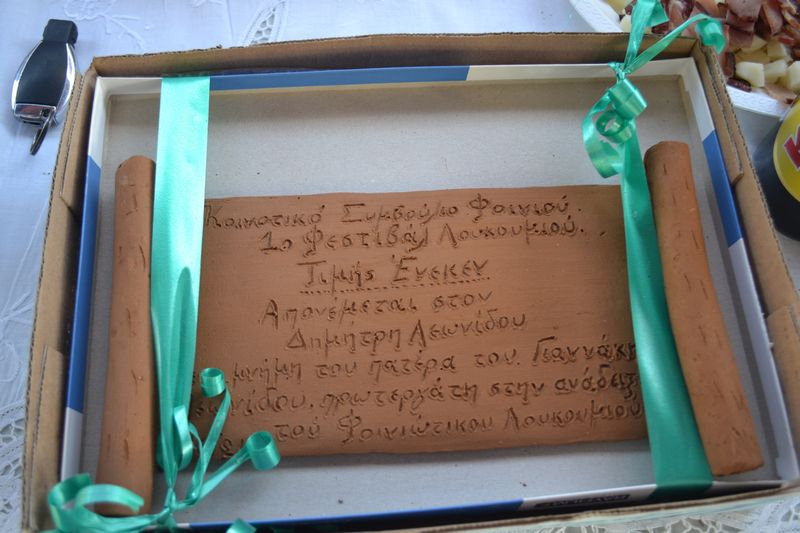 Κοινοτικό Συμβούλιο Φοινιού.
1ο Φεστιβάλ Λουκουμιού.
Τιμής Ένεκεν
Απονέμεται στον
Δημήτρη Λεωνίδου
μνήμη του πατέρα του Γιαννάκη
πρωτεργάτη στην
του Φοινιώτικου Λουκουμιού